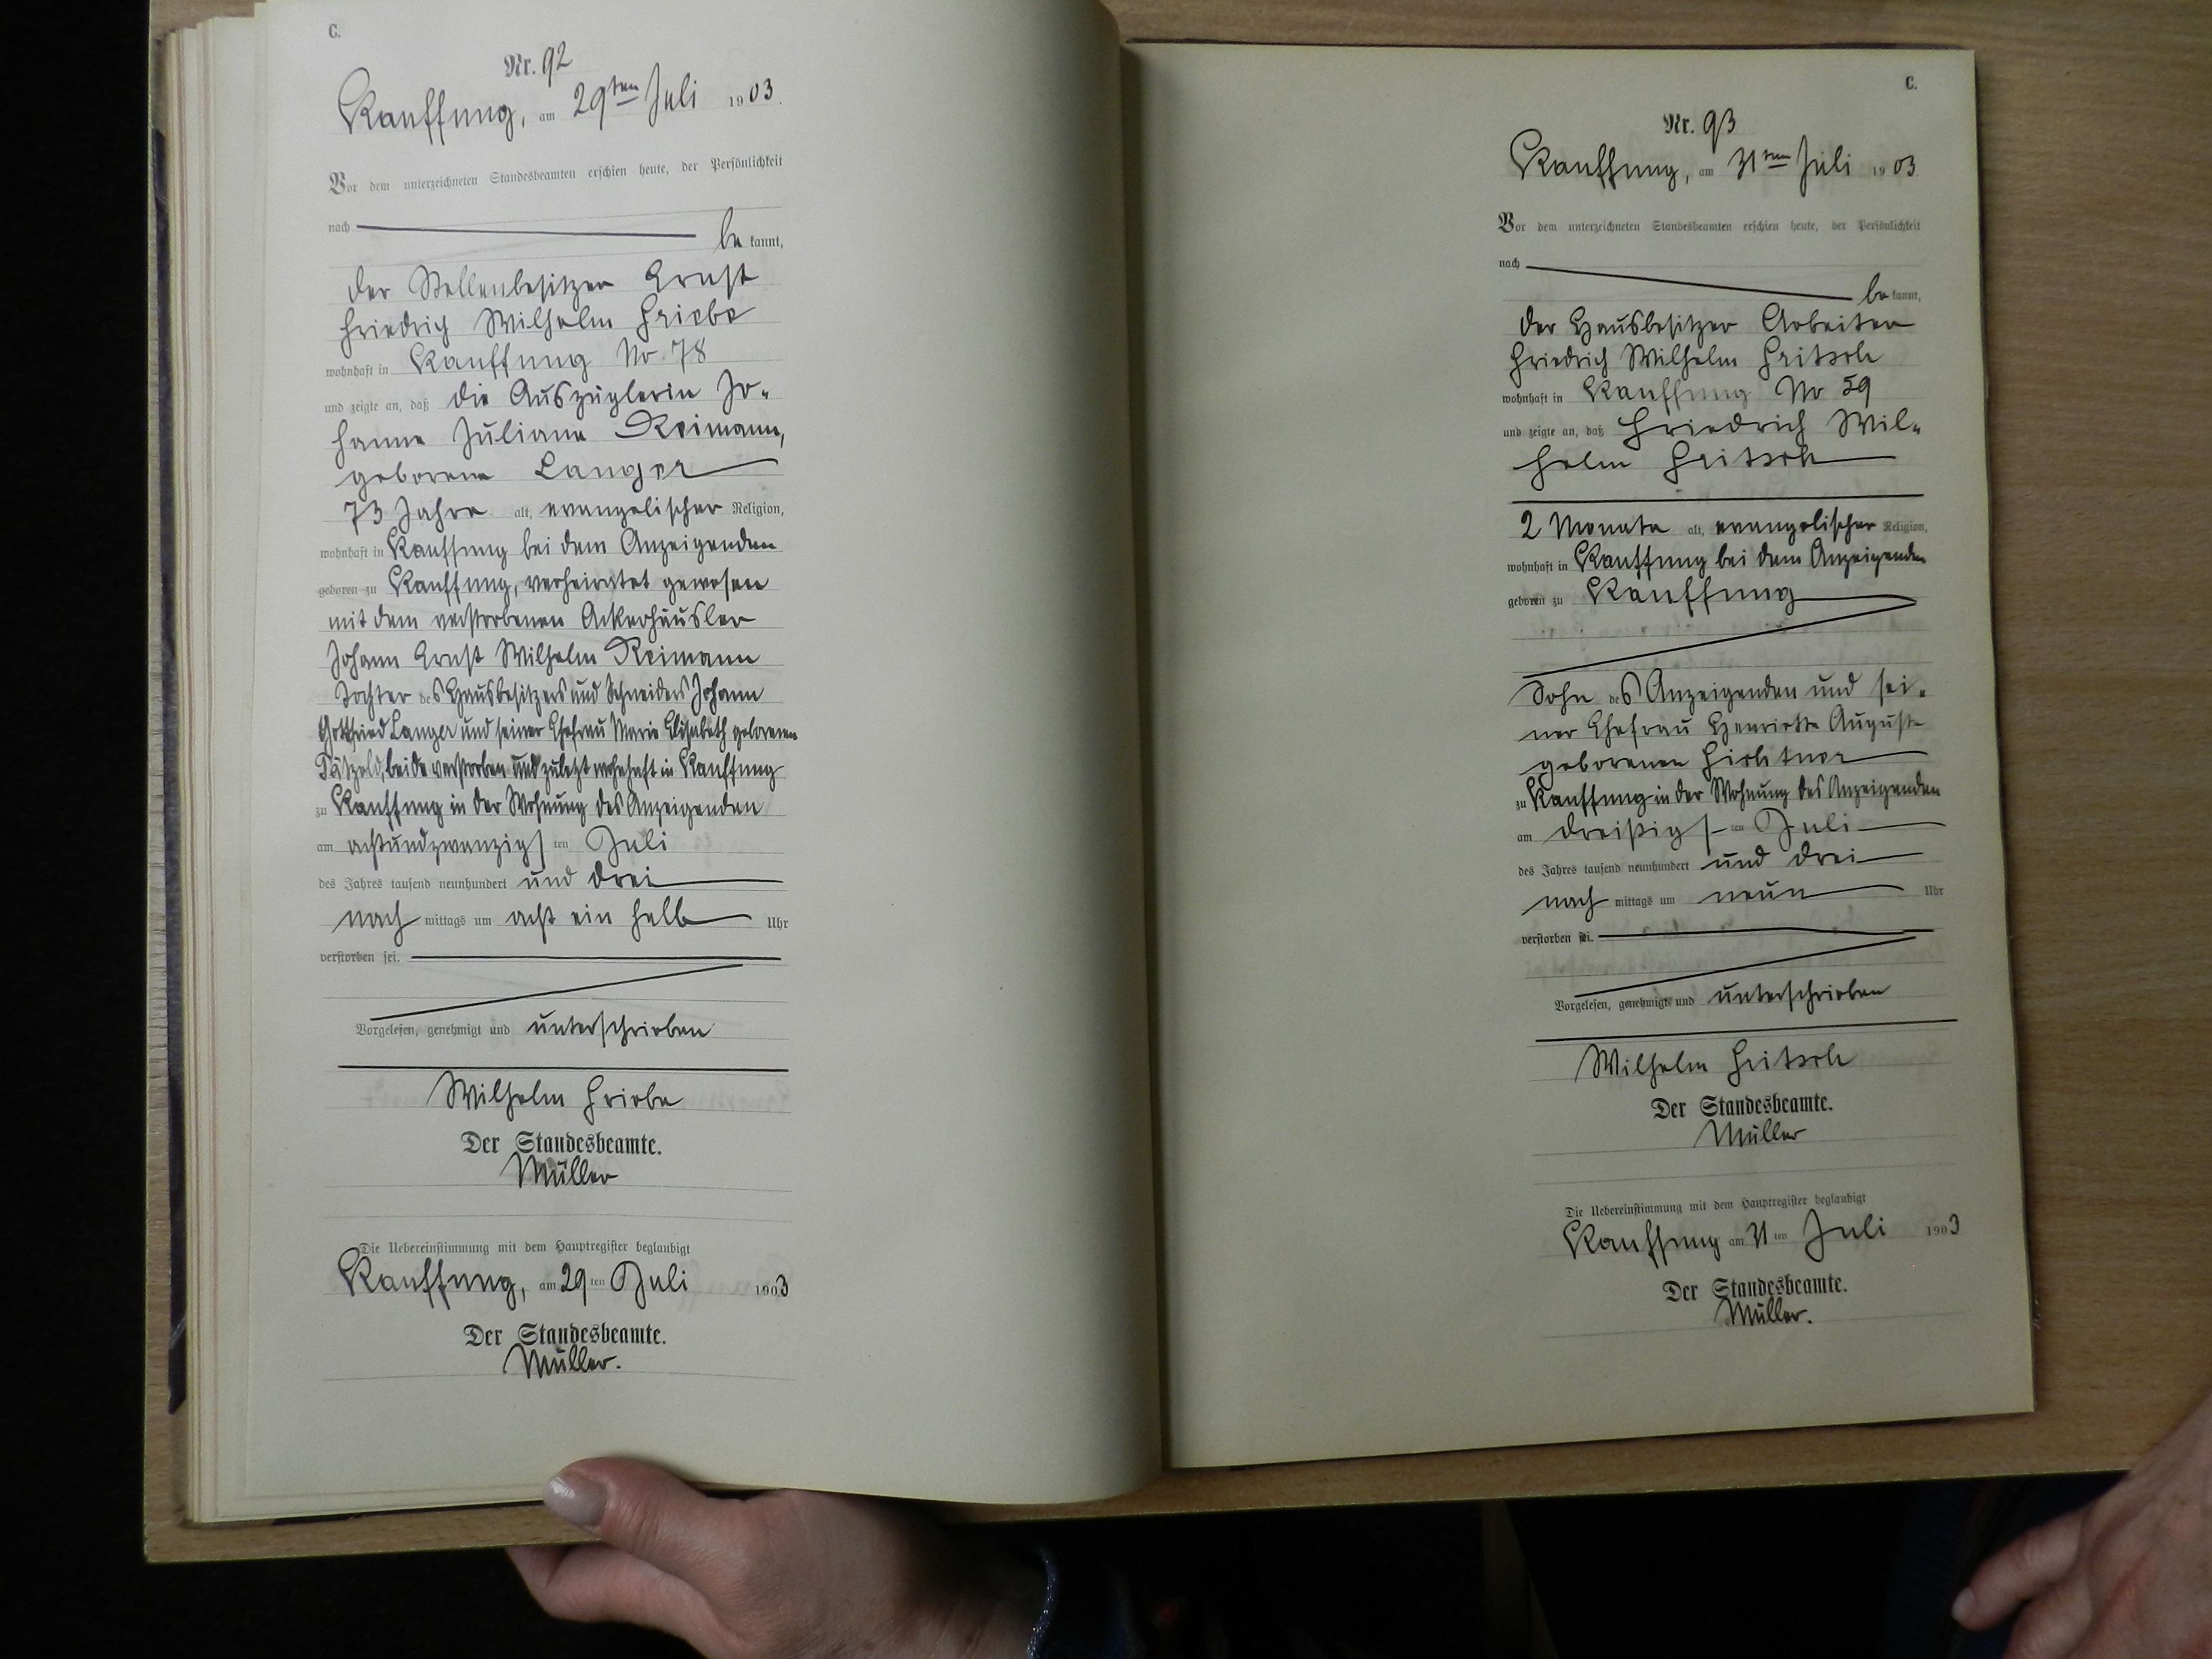 C.
Nr. 92
Kauffung, am 29ten Juli 1903.
Vor dem unterzeichneten Standesbeamten erschien heute, der Persönlichkeit
nach be kannt,
der Stellenbesitzer Ernst
Friedrich Wilhelm Friebe
wohnhaft in Kauffung No 78
und zeigte an, daß die Auszüglerin Jo-
hanne Juliane Reimann,
geborene Langer
73 Jahre alt, evangelischer Religion,
wohnhaft in Kauffung bei dem Anzeigenden
geboren zu Kauffung, verheiratet gewesen
mit dem verstorbenen Ackerhäusler
Johann Ernst Wilhelm Reimann
Tochter des Hausbesitzers und Schneiders Johann
Gottfried Langer und seiner Ehefrau Marie Elisabeth geborenen
beide verstorben und zuletzt wohnhaft in Kauffung
zu Kauffung in der Wohnung des Anzeigenden
am achtundzwanzigsten Juli
des Jahres tausend neunhundert und drei
nach mittags um acht ein halb Uhr
verstorben sei.
Vorgelesen, genehmigt und unterschrieben
Wilhelm Friebe
Der Standesbeamte.
Müller
Die Uebereinstimmung mit dem Hauptregister beglaubigt
Kauffung, am 29ten Juli 1903
Der Standesbeamte.
Müller.
C.
Nr. 93
Kauffung, am 31ten Juli 1903
Vor dem unterzeichneten Standesbeamten erschien heute, der Persönlichkeit
nach be kannt,
der Hausbesitzer Arbeiter
Friedrich Wilhelm Fritsch
wohnhaft in Kauffung No 59
und zeigte an, daß Friedrich Wil-
helm Fritsch
2 Monate alt, evangelischer Religion,
wohnhaft in Kauffung bei dem Anzeigenden
geboren zu Kauffung
Sohn des Anzeigenden und sei-
ner Ehefrau Henriette Auguste
geborenen
zu Kauffung in der Wohnung des Anzeigenden
am dreißigsten Juli
des Jahres tausend neunhundert und drei
nach mittags um neun Uhr
verstorben sei.
Vorgelesen, genehmigt und unterschrieben
Wilhelm Fritsch
Der Standesbeamte.
Müller
Die Uebereinstimmung mit dem Hauptregister beglaubigt
Kauffung am 31ten Juli 1903
Der Standesbeamte.
Müller.